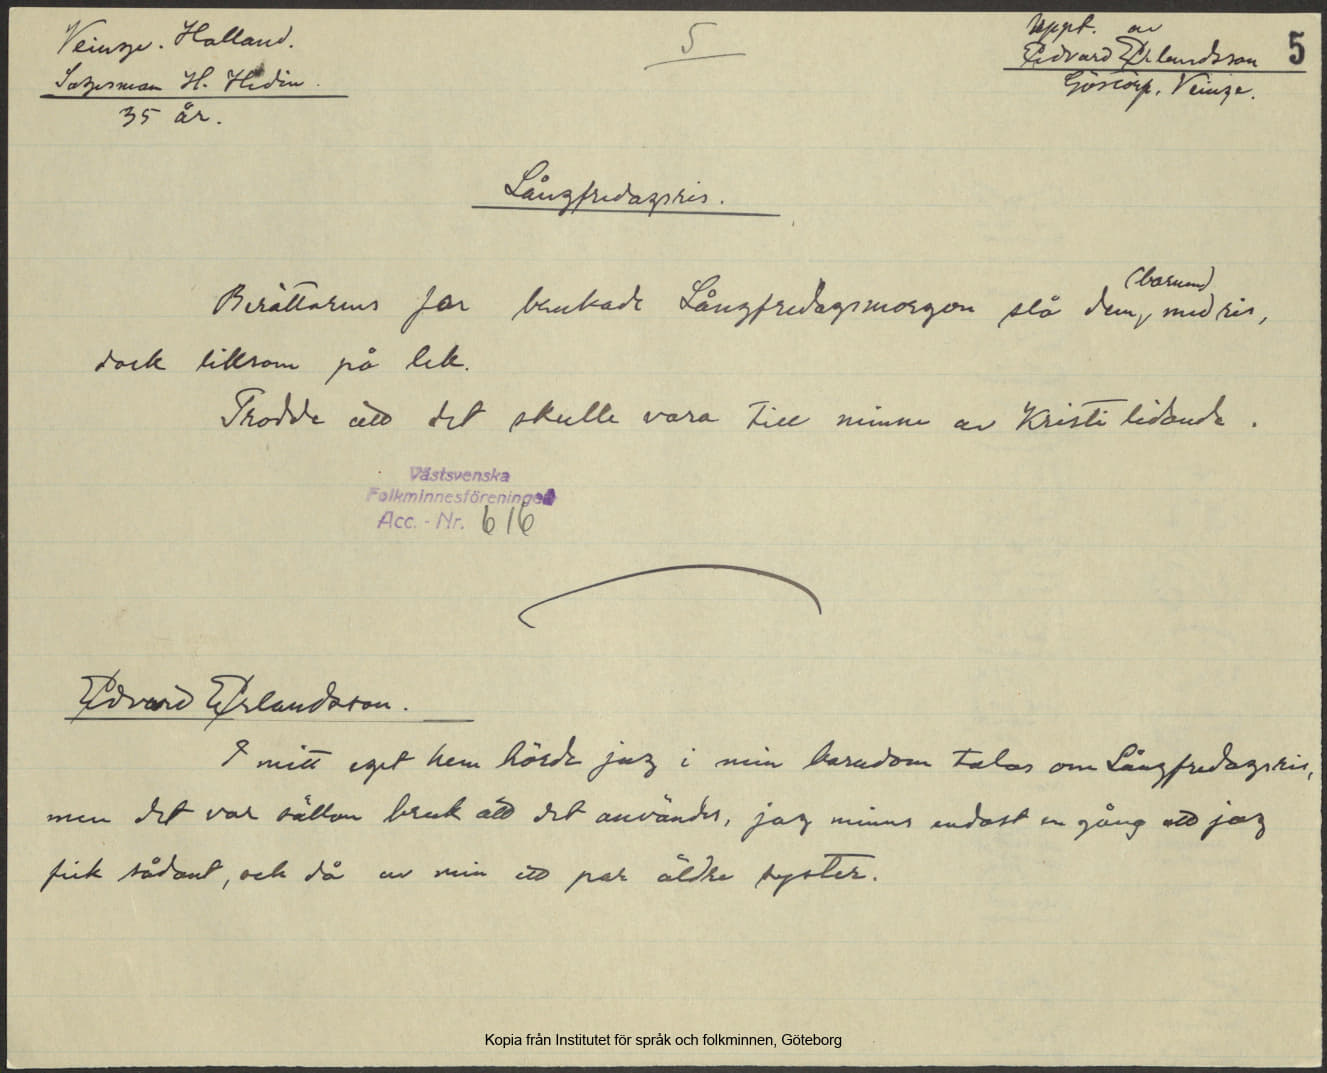 Veinge. Halland.
Sagesman H. Hedin.
35 år.
5
Uppt. av
Edvard Erlandsson
Göstorp, Veinge.
5
Långfredagsris.
Berättarens far brukade Långfredagsmorgon slå dem, (barnen) med ris,
dock liksom på lek.
Trodde att det skulle vara till minne av Kristi lidande.
Västsvenska
Folkminnesföreningen
Acc. - Nr. 616
Edvard Erlandsson.
I mitt eget hem hörde jag i min barndom talas om Långfredagsris,
men det var sällan bruk att det användes, jag minns endast en gång att jag
fick sådant, och då av min ett par äldre syster.
Kopia från Institutet för språk och folkminnen, Göteborg